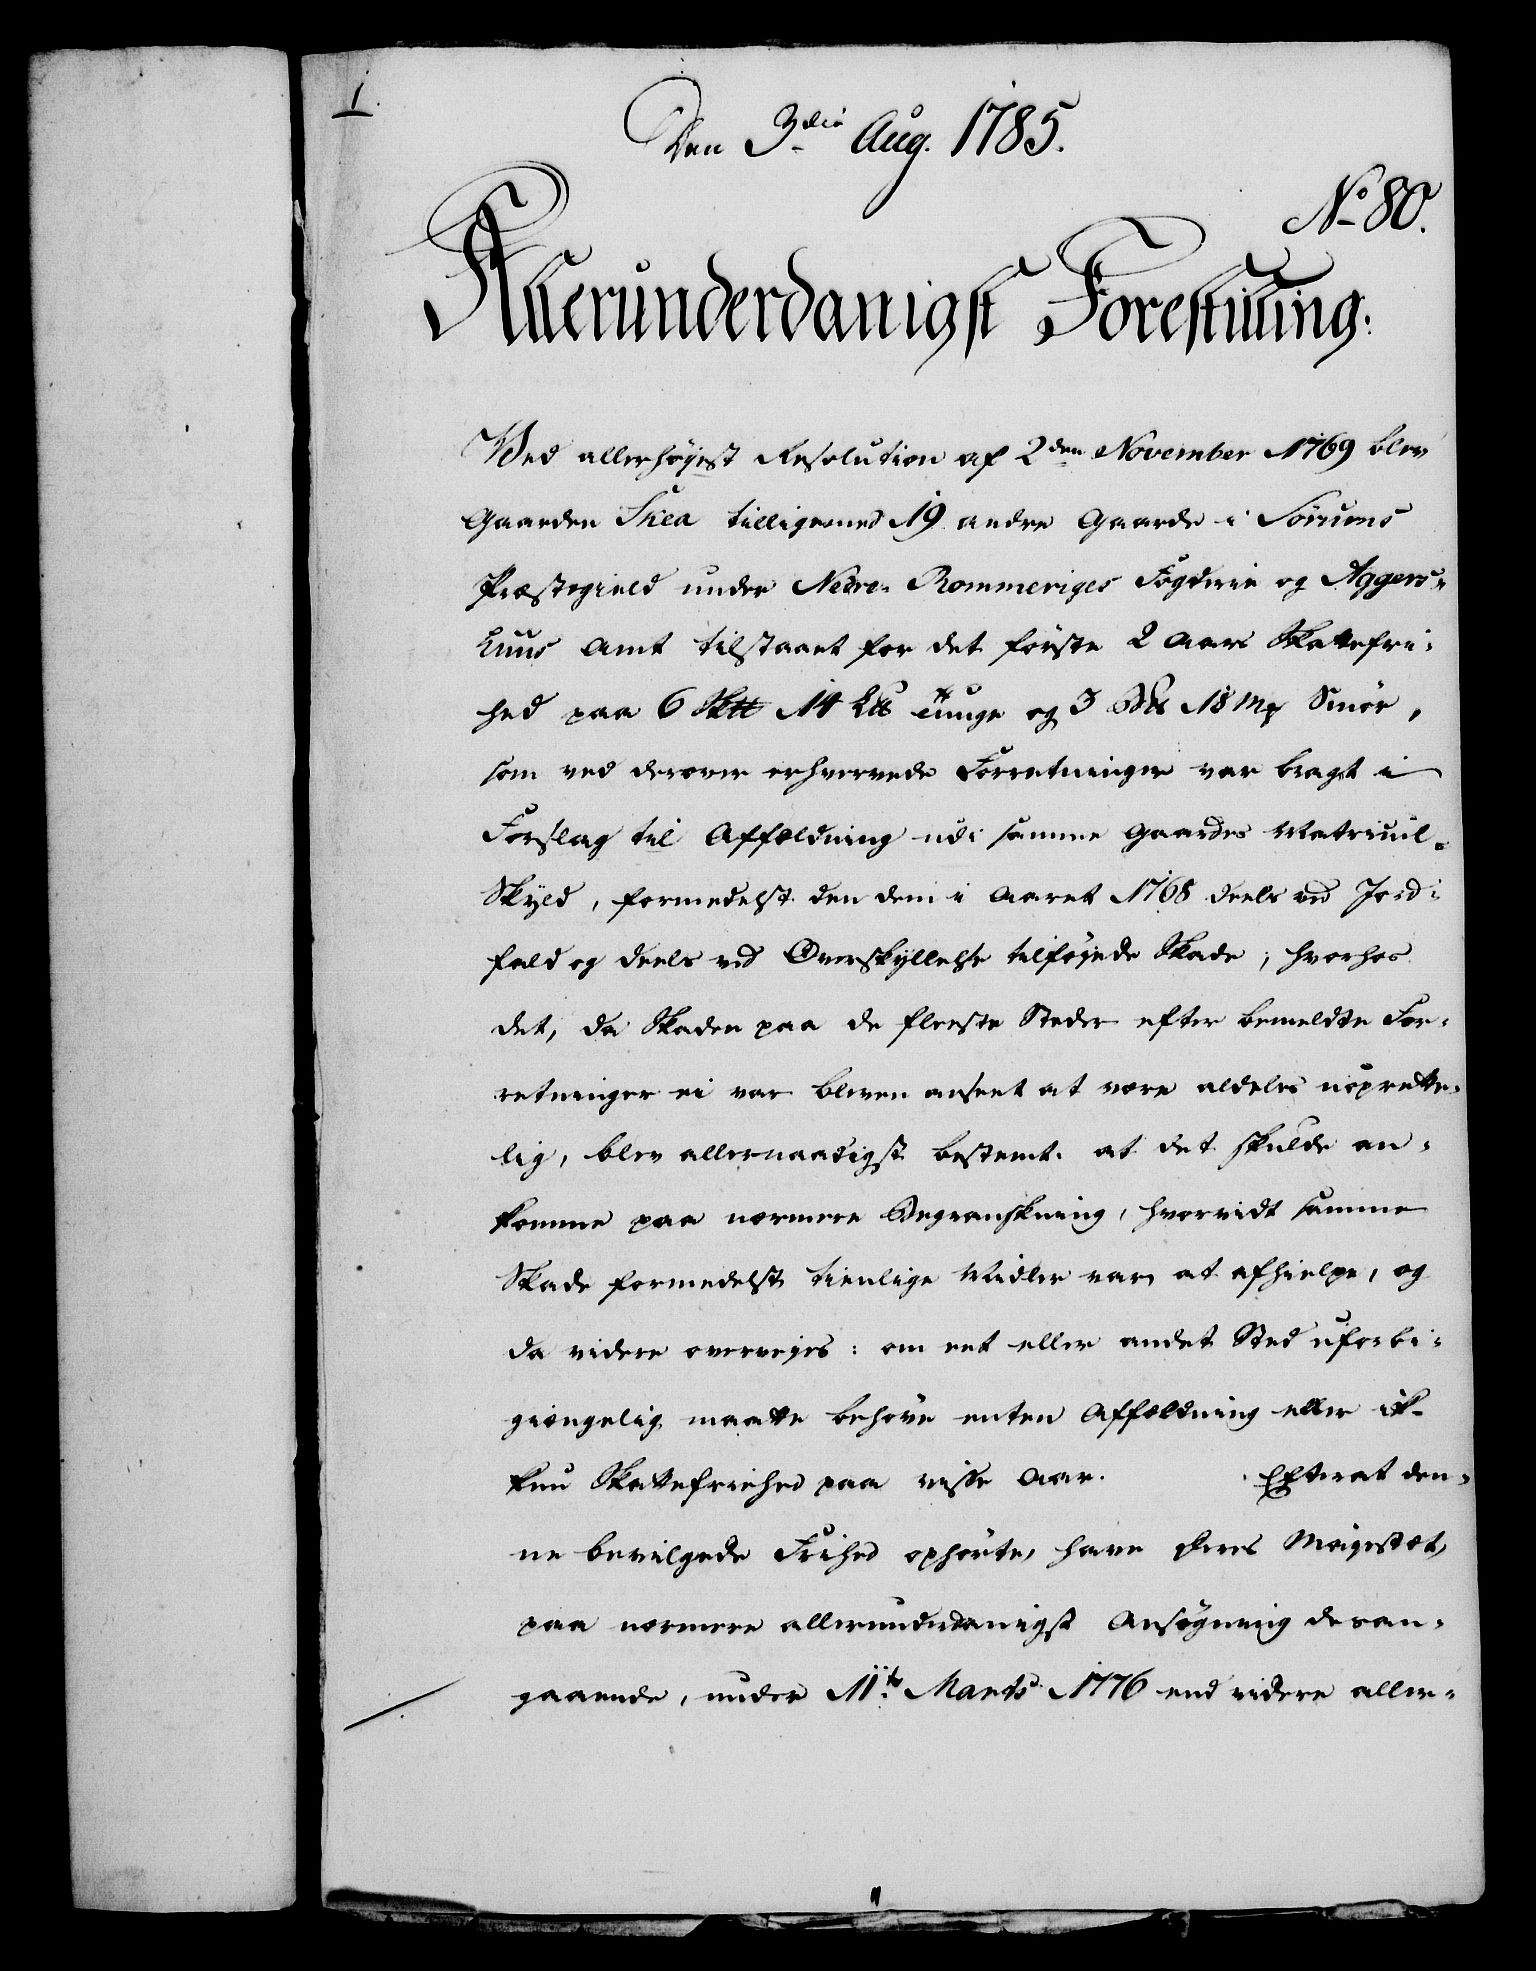 1.
Den 3die Aug. 1785.
No 80.
Allerunderdanigst Forestilling.
Ved allerhøyest Resolution af 2den November 1769 blev
Gaarden Skea tilligemed 19 andre Gaarde i Sörums
Præstegield under Nedre Rommeriges Fogderie og Aggers-
huus Amt tilstaaet for det förste 2 Aars Skattefri-
hed paa 6 Sk℔ 14 L℔ Tunge og 3 B℔ 18 Mk Smör,
som ved derover erhvervede Forretninger var bragt i
Forslag til Affældning udi samme Gaardes Matricul-
Skyld, formedelst den dem i Aaret 1768 deels ved Jord-
fald og deels ved Overskyllelse tilføyede Skade; hvorhos
det, da Skaden paa de fleeste Steder efter bemeldte For-
retninger ei var bleven anseet at være aldeles uoprette-
lig, blev allernaadigst bestemt at det skulde an-
komme paa nærmere Begranskning, hvorvidt samme
Skade formedelst tienlige Midler var at afhielpe, og
da videre overveyes: om eet eller andet Sted uforbi-
giængelig maatte behöve enten Affældning eller ik-
kun Skattefriehed paa visse Aar. Efterat den-
ne bevilgede Frihed ophörte, have Deres Mayestæt,
paa nærmere allerunderdanigst Ansøgning desan-
gaaende, under 11te Marts 1776 end videre aller-